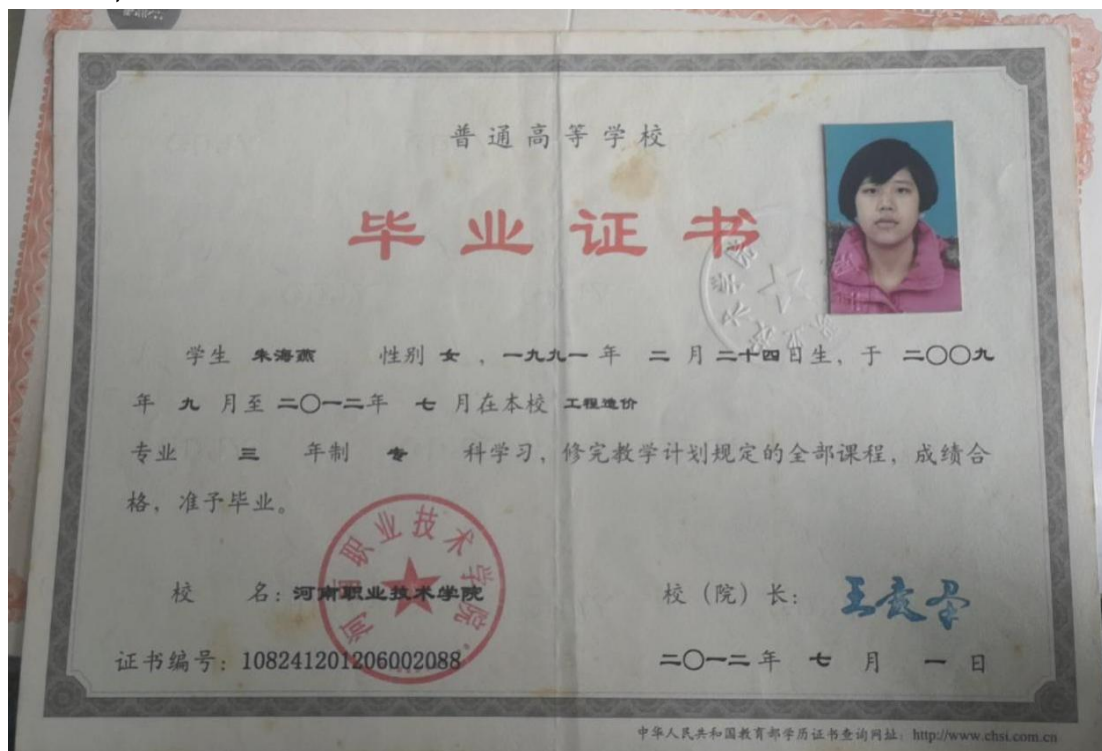 普通高等学校
毕业证书
学生 朱海燕 性别 女 ，一九九一 年 二 月 二十四日生，于 二〇〇九
年 九 月至 二〇一二年 七 月在本校 工程造价
专业 三 年制 专 科学习，修完教学计划规定的全部课程，成绩合
格，准予毕业。
河南职业技术学院
校 名：河南职业技术学院 校（院）长：
证书编号：108241201206002088 二〇一二年 七 月 一 日
中华人民共和国教育部学历证书查询网址：http://www.chsi.com.cn